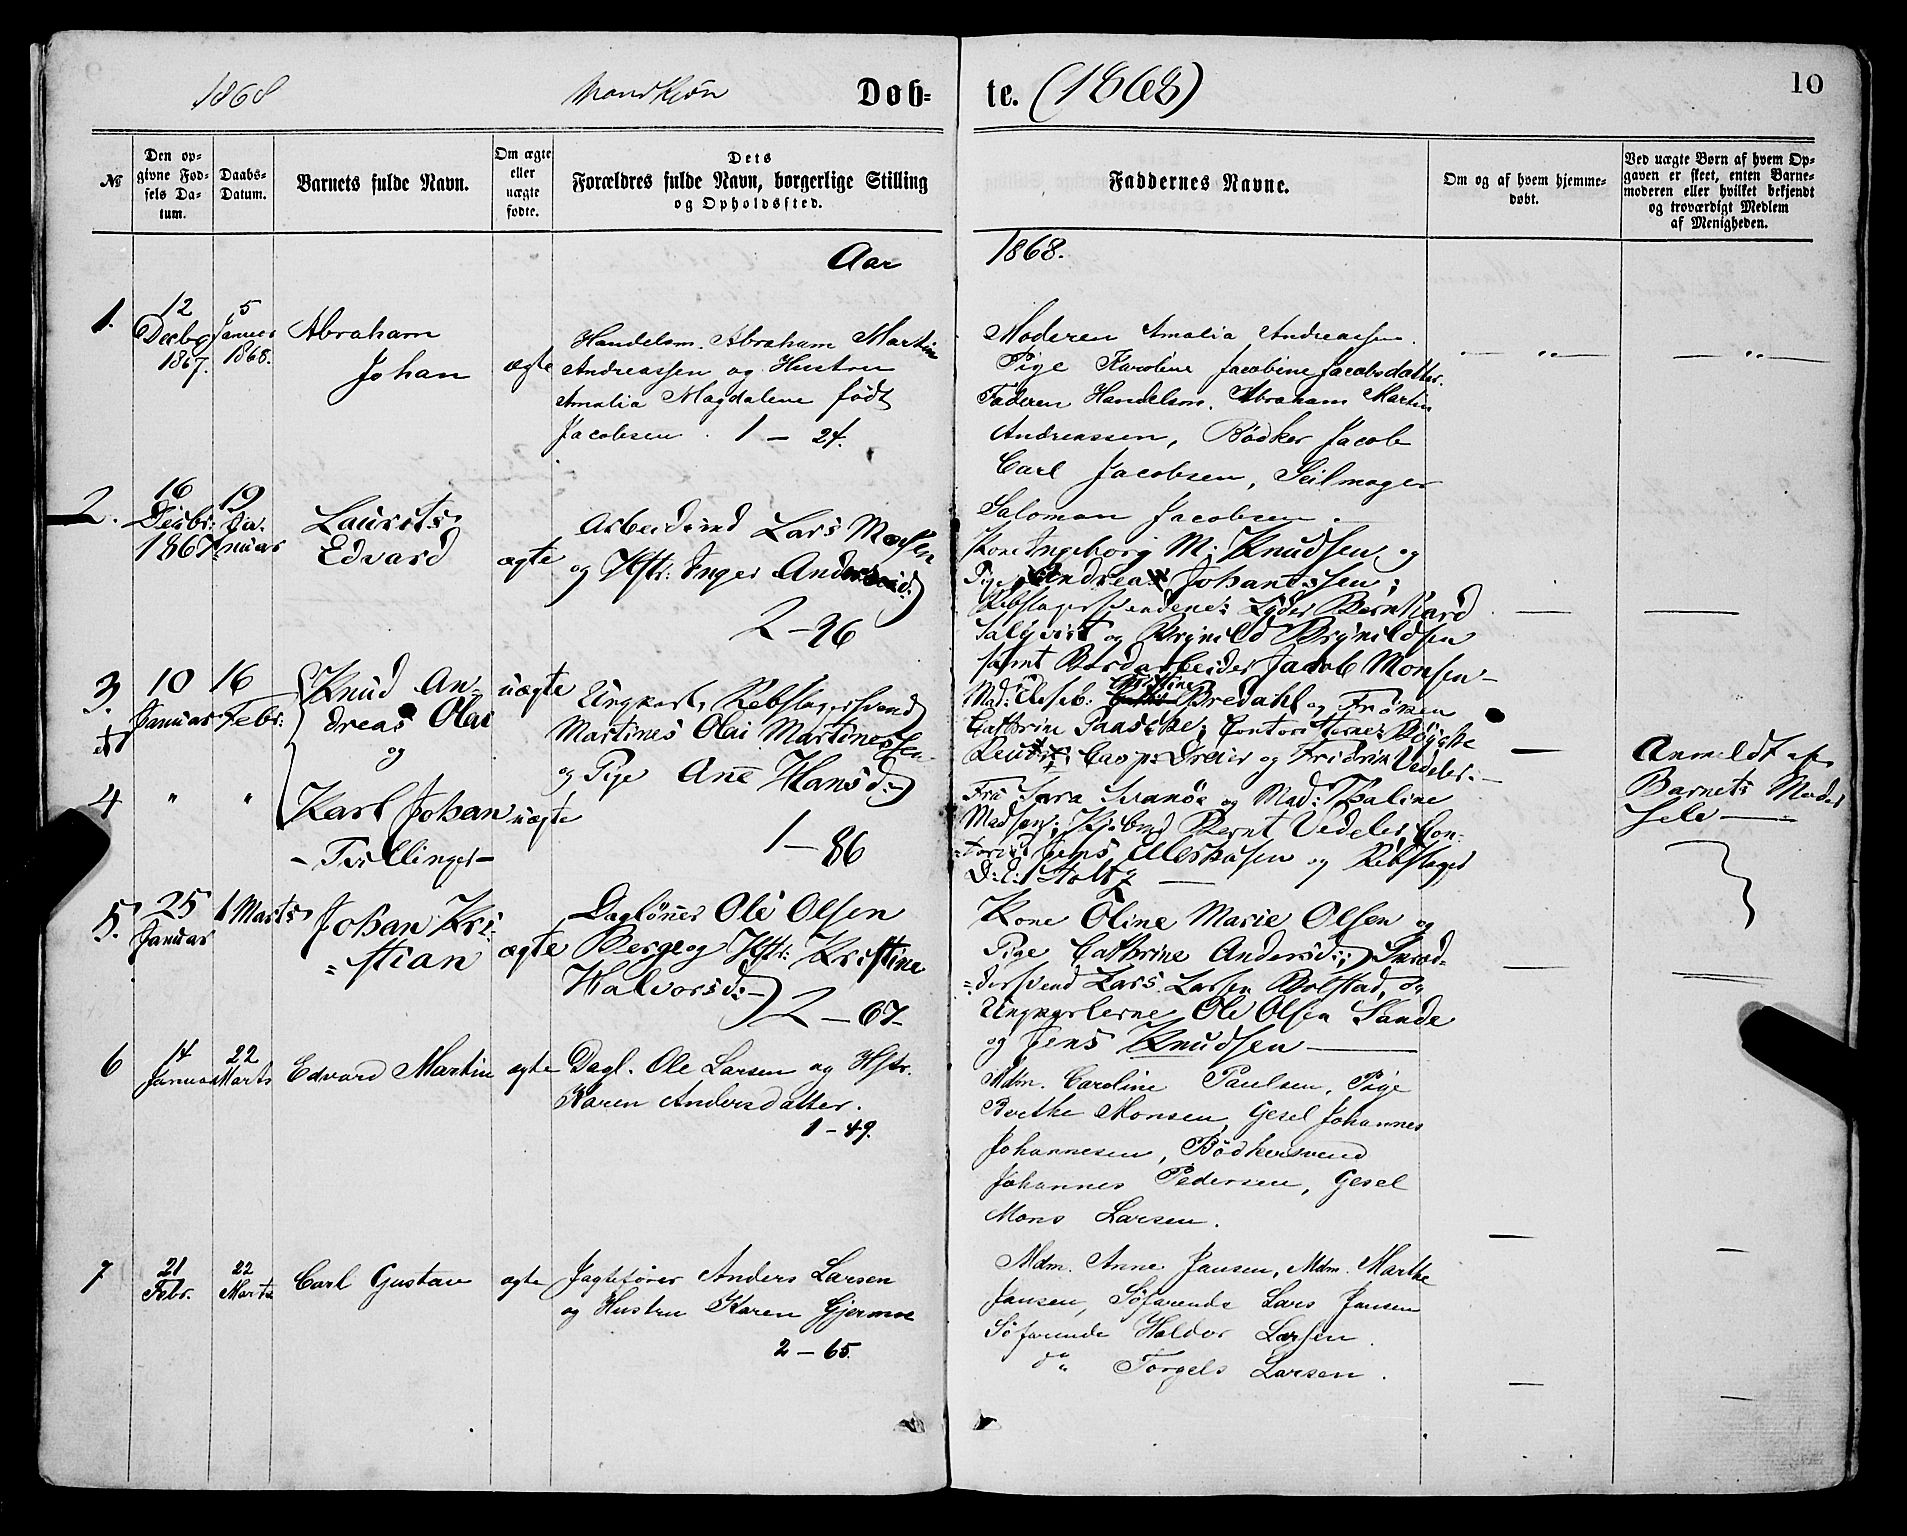 1868 Mandkjøn Døb- te. (1868) 10
№
Den op-
givne Fød-
sels Da-
tum.
Daabs-
Datum.
Barnets fulde Navn.
Om ægte
eller
uægte
fødte.
Dets
Forældres fulde Navn, borgerlige Stilling
og Opholdssted.
Faddernes Navne.
Om og af hvem hjemme-
døbt.
Ved uægte Børn af hvem Op-
gaven er skeet, enten Barne-
moderen eller hvilket bekjendt
og troværdigt Medlem
af Menigheden.
Aar 1868.
1.
12
Decbr
1867.
5
Januar
1868.
Abraham
Johan
ægte
Handelsm. Abraham Martin
Andreassen og Hustru
Amalia Magdalene født
Jacobsen. 1 – 24.
Moderen Amalia Andreassen.
Pige Karoline Jacobine Jacobsdatter.
Faderen Handelsm. Abraham Martin
Andreassen, Bødker Jacob
Carl Jacobsen, Seilmager
Salomon Jacobsen.
— „ —
— „ —
2.
16
Decbr:
1867.
19
Ja-
nuar
Laurits
Edvard
ægte
Arbeidsmd Lars
og Hstr: Inger
2–96
Kone Ingeborg M: Knudsen og
Pige Andrea Johannssen;
Rebslagersvendene: Lyder Berntzard
og Brynild Brynildsen
samt Bordarbeider Jacob Monsen –
3.
10
Januar
16
Febr:
Knud An-
dreas Olai
og
uægte
Ungkarl, Rebslagersvend
Martines Olai Martinessen
og Pige Ane Hansd:
1–86
Mad: Christine Bredahl og Frøken
Cathrine
Casp: Dreier og Fridrik Vedeler. –
4
"
"
Karl Johan
– Tvillinger –
uægte
Fru Sara Svanøe og Mad: Thaline
Madsen; Kjøbmd Bernt Vedeler, Con-
Jens og Rebslager
D: d: Holtz —
Anmeldt af
Barnets Moder
Selv —
5.
25
Januar
1 Marts
Johan Kri-
=stian
ægte
Dagløner Ole Olsen
Berge og Hstr: Kristine
Halvorsd:
2–67–
Kone Oline Marie Olsen og
Pige Cathrine Andersd:; Snæd-
=dersvend Lars Larsen Bolstad, &
Ungkarlerne Ole Olsen Sande
og Jens Knudsen —
6
14
Januar
22
Marts
Edvard Martin
ægte
Dagl. Ole Larsen og Hstr.
Karen Andersdatter.
1–49.
Mdm. Caroline Paulsen, Pige
Berthe Monsen, Gesel Johannes
Johannesen, Bødkersvend
Johannes Pedersen, Gesel
Mons Larsen.
7
21
Febr.
22
Marts
Carl Gustav
ægte
Jagtefører Anders Larsen
og Hustru Karen Gjermoe
2–65.
Mdm. Anne Jansen, Mdm. Marthe
Jansen, Søfarende Lars Jansen
Søfarende Haldor Larsen.
d° Torgels Larsen.